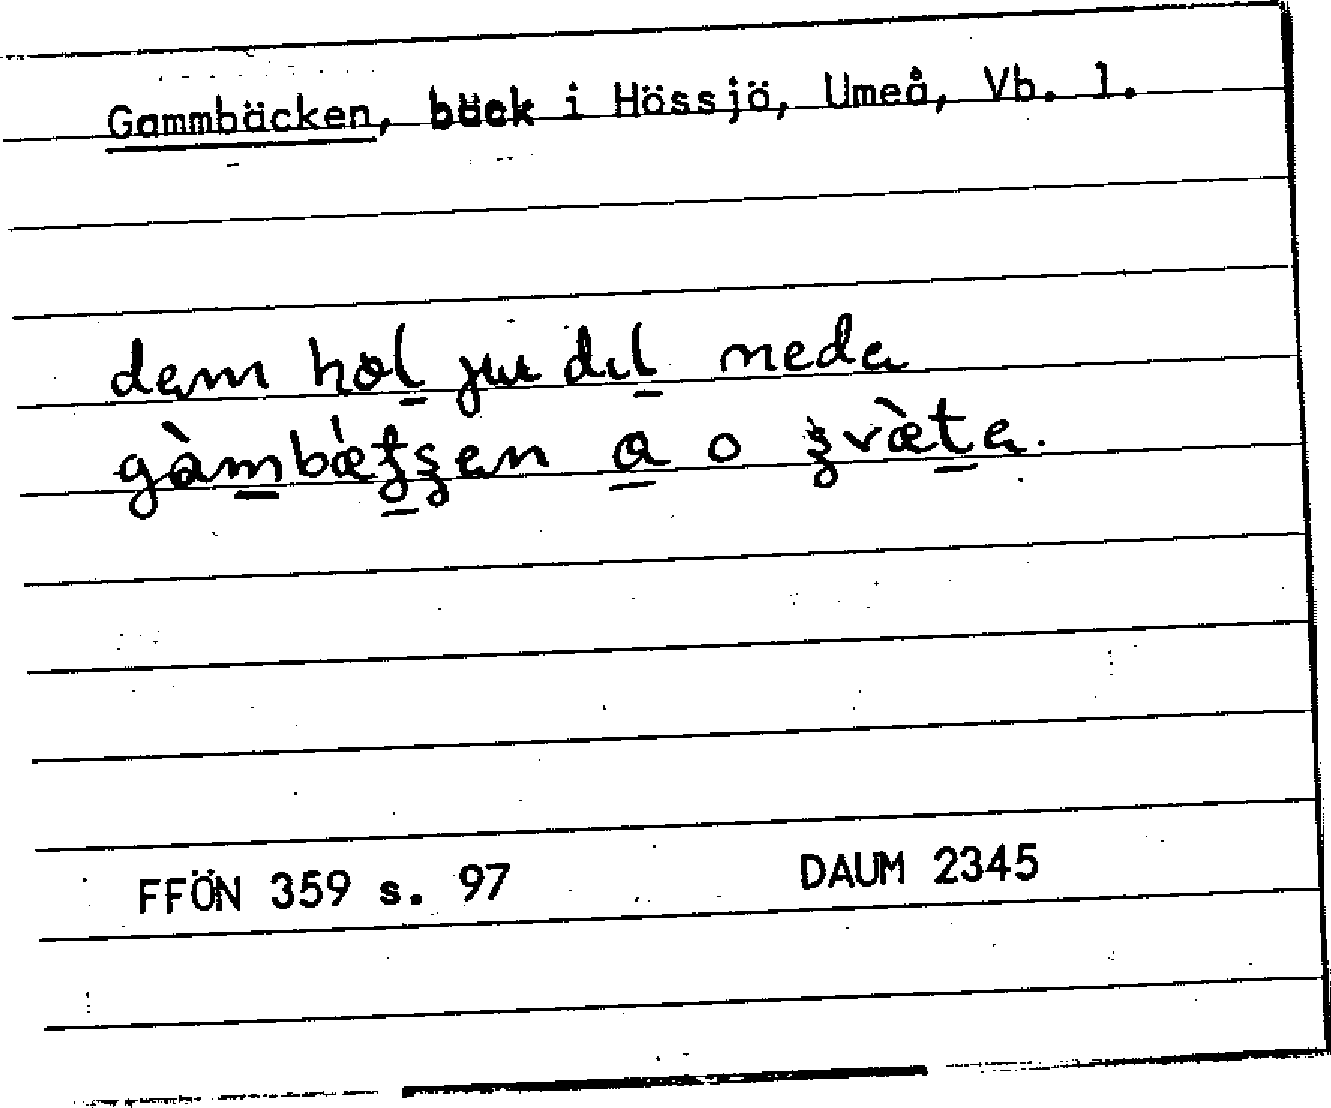 Gammbäcken, bäck i Hössjö, Umeå, Vb. l.
dem hol ju dɩl neda
gàmbǽʈʂen a o ʂvæ̀ta.
FFÖN 359 s. 97 DAUM 2345